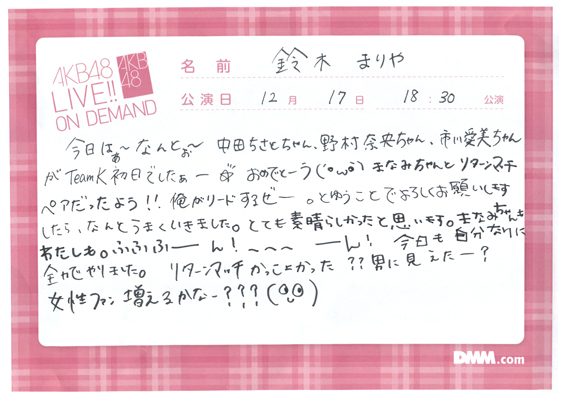 AKB48
LIVE!!
ON DEMAND
AKB
48
名前 鈴木 まりや
公演日 12月 17日 18:30 公演
今日はぁ〜なんとぉ〜 中田ちさとちゃん、野村奈央ちゃん、市川愛美ちゃん
がTeamK初日でしたぁー おめでとーう(´°ω°`) まなみちゃんとリターンマッチ
ペアだったよう!! 俺がリードするぜー。とゆうことでよろしくお願いします
したら、なんとうまくいきました。とても素晴らしかったと思います。まなみちゃんも
わたしも。ふふふーーん!〜〜〜 ーーん! 今日も自分なりに
全力でやりました。 リターンマッチかっこよかった??男に見えたー?
女性ファン増えるかなー???
DMM.com